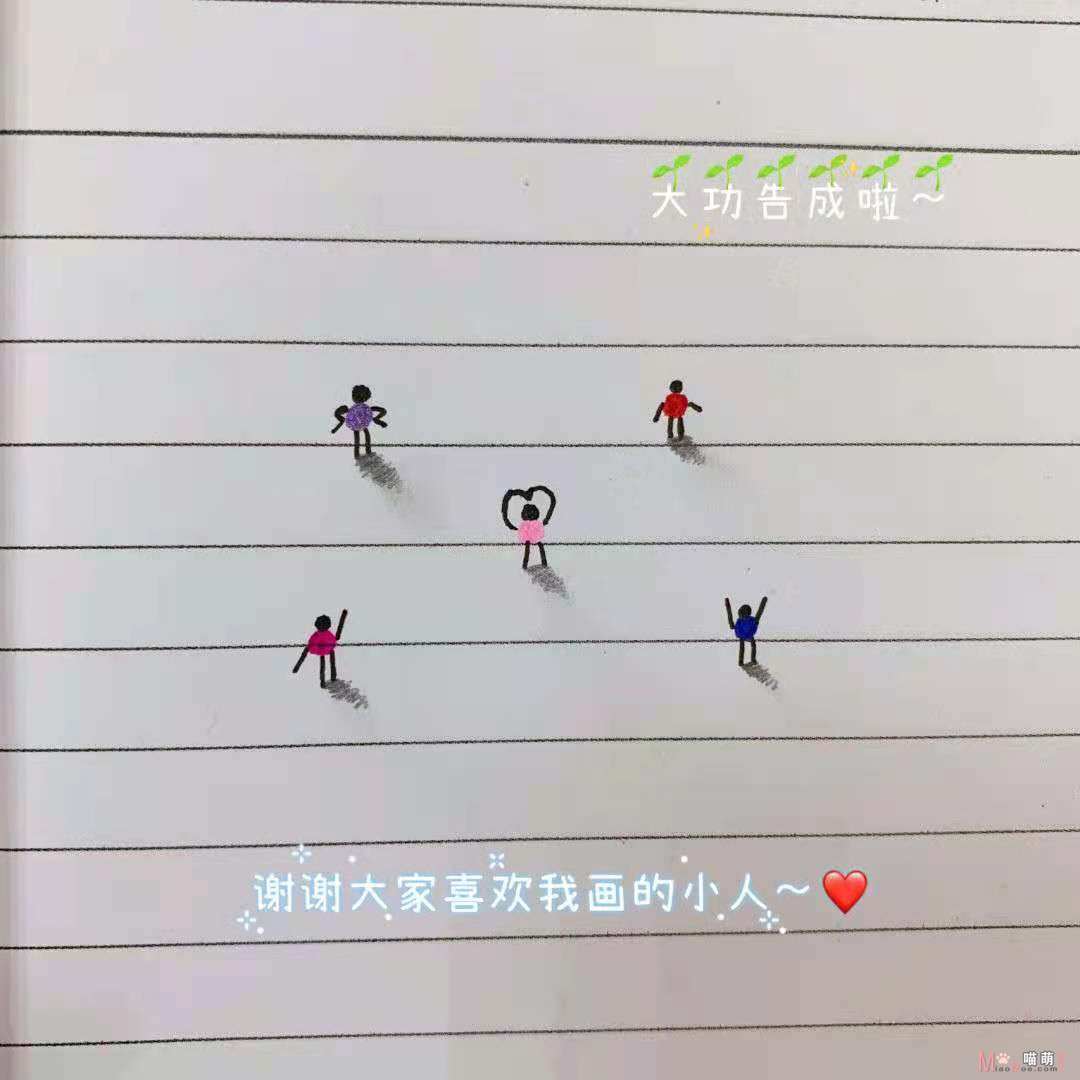 大功告成啦～
谢谢大家喜欢我画的小人～
喵萌